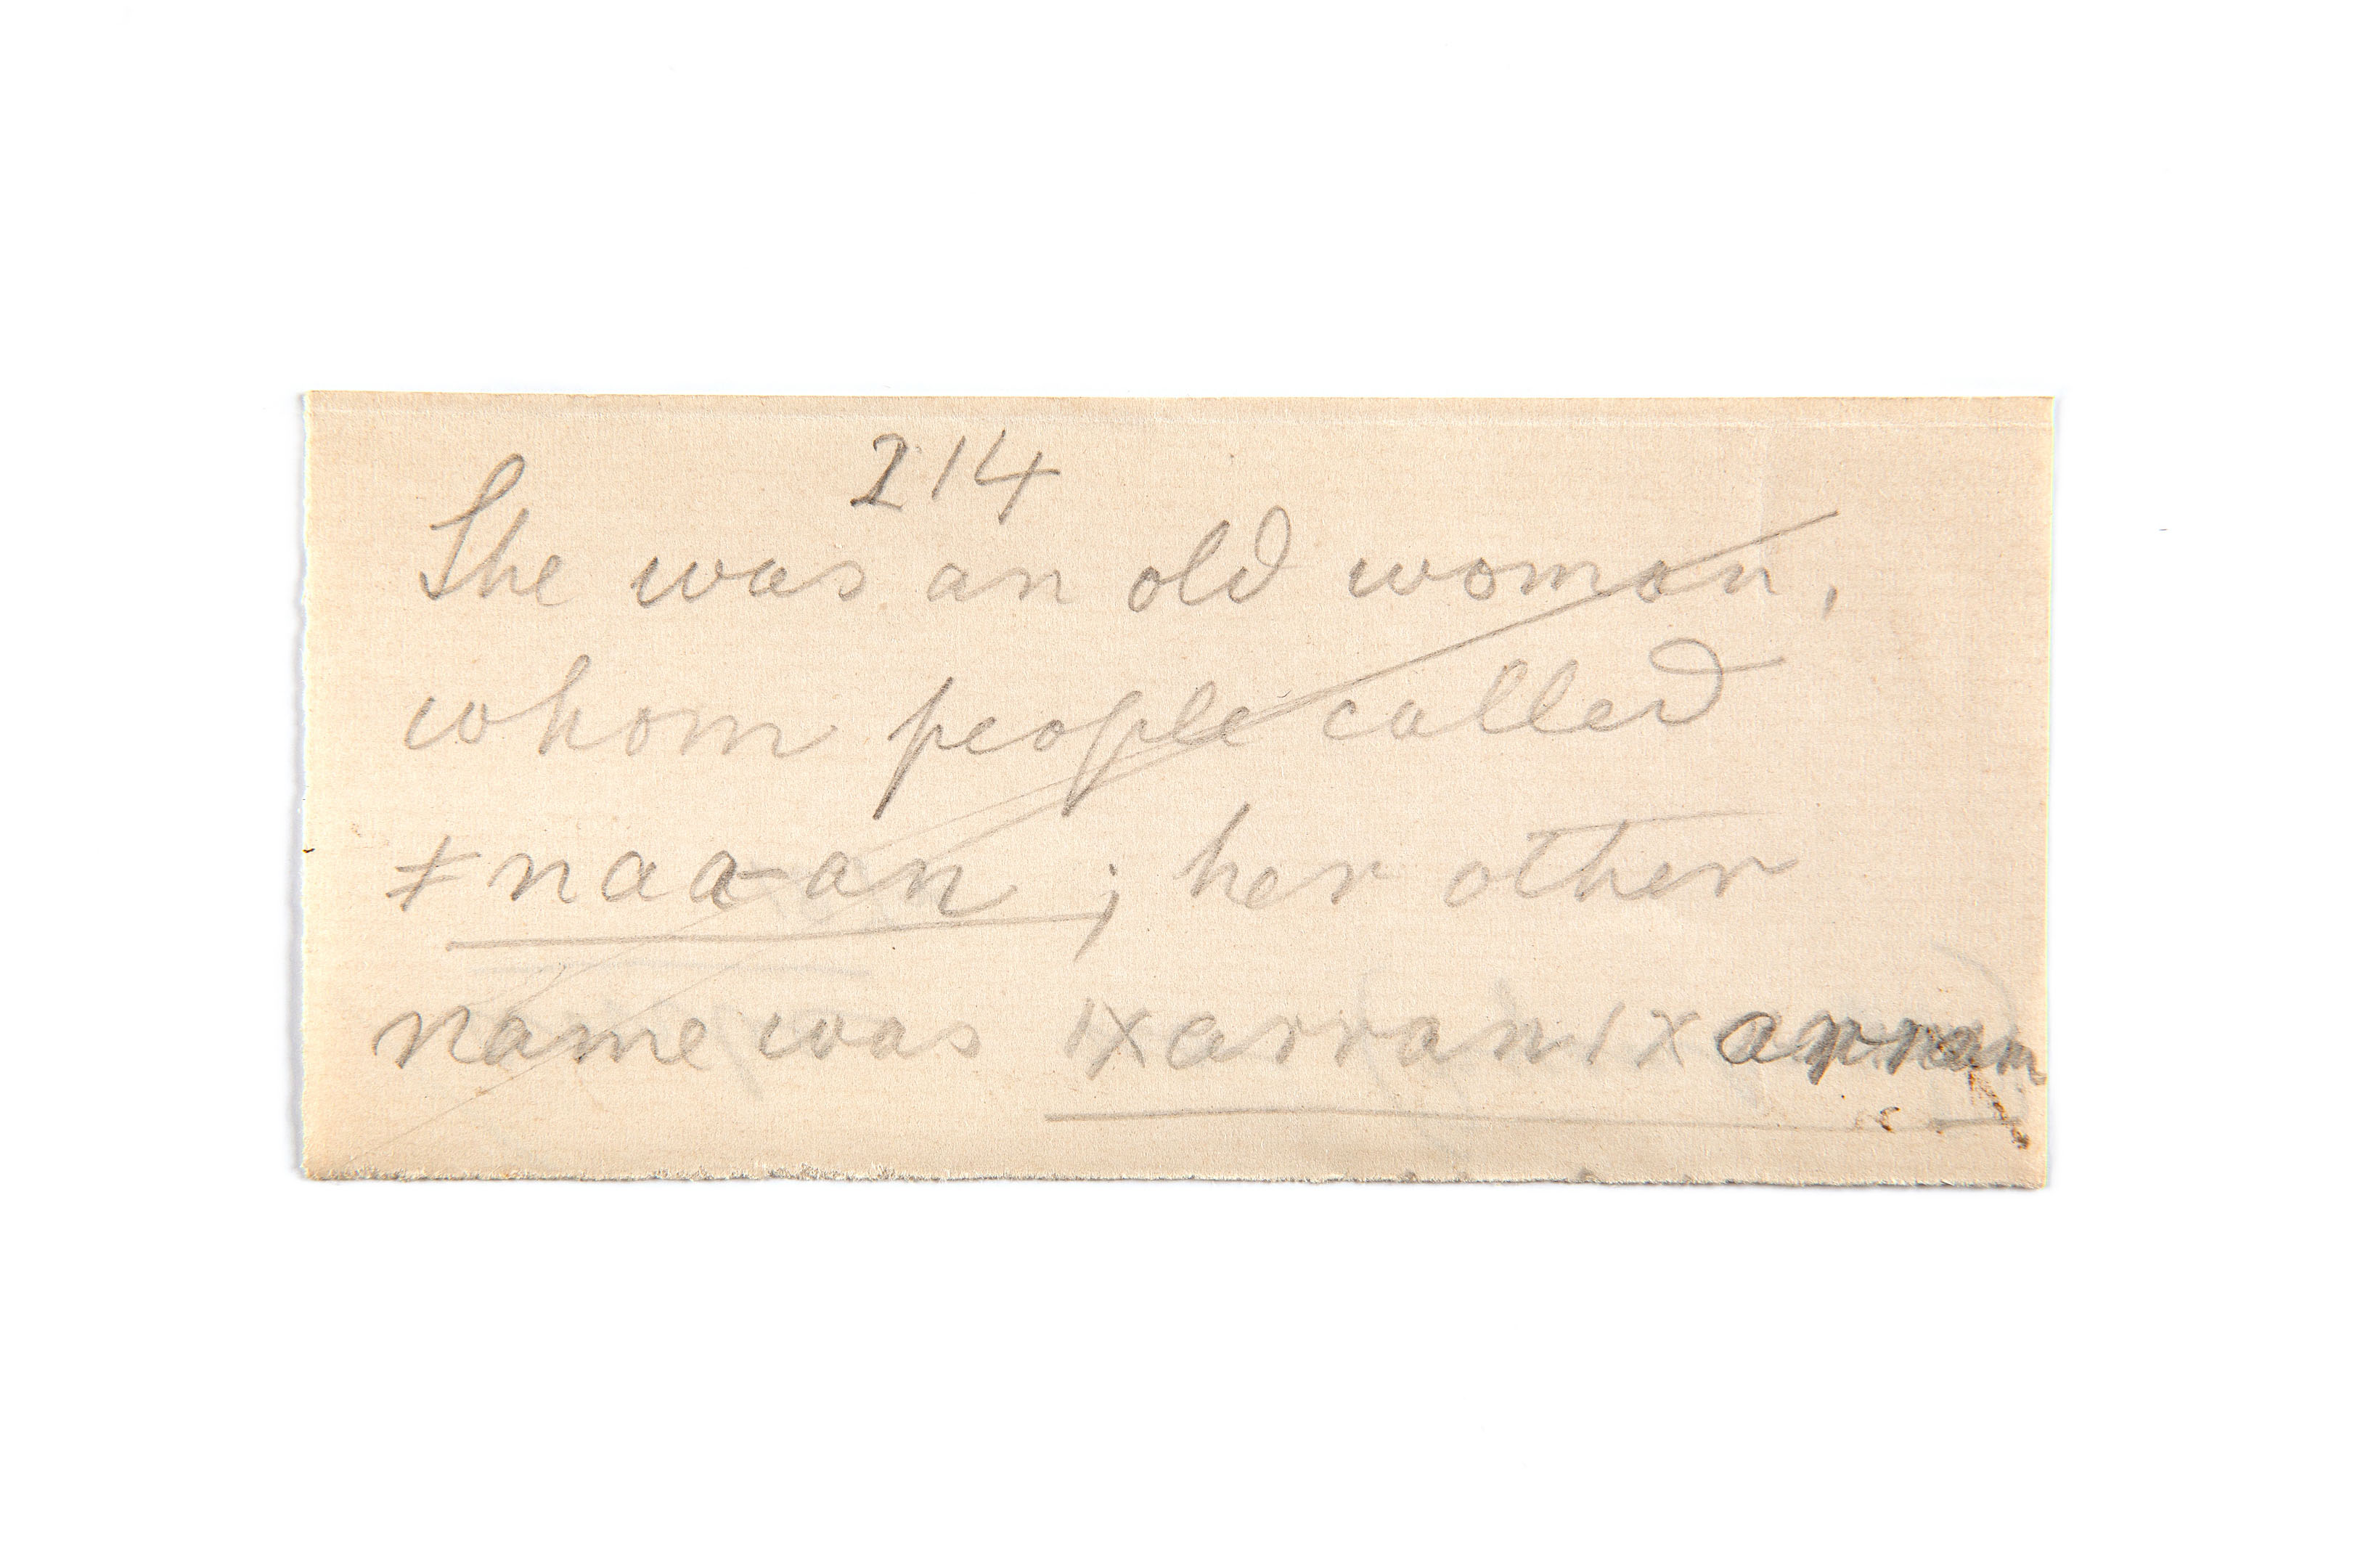 214
She was an old woman,
whom people called
ǂnaa-an; her other
name was ǀxarranǀxarram